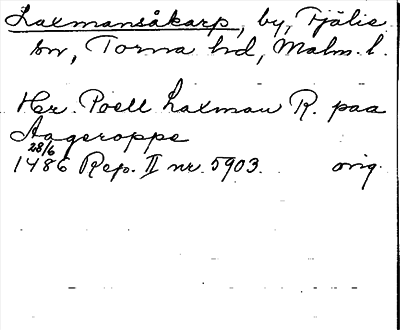 Laxmansåkarp, by, Fjälie
sn, Torna hd, Malm. l.
Hr. Poell Laxman R. paa
Aageroppe
28/6
1486 Rep. II nr. 5903. orig.